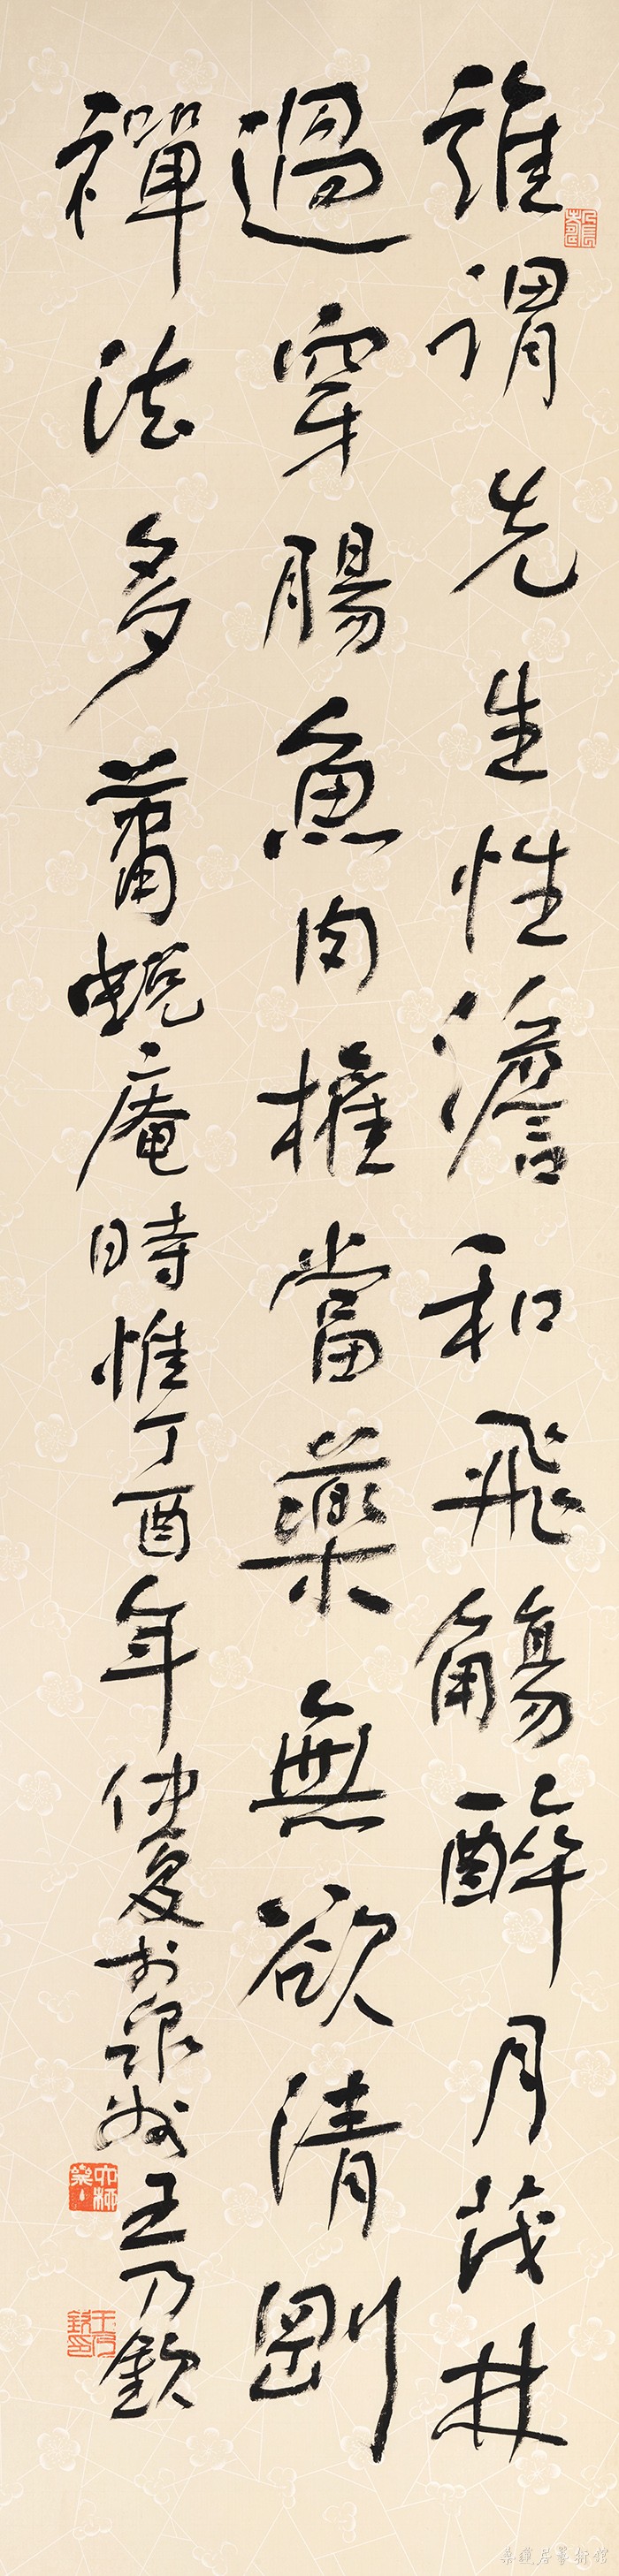 誰謂先生性澹和飛觴醉月茂林
過穿腸魚肉權當藥無欲清剛
禪法多蕭蜕庵時惟丁酉年仲夏於泉州王乃欽